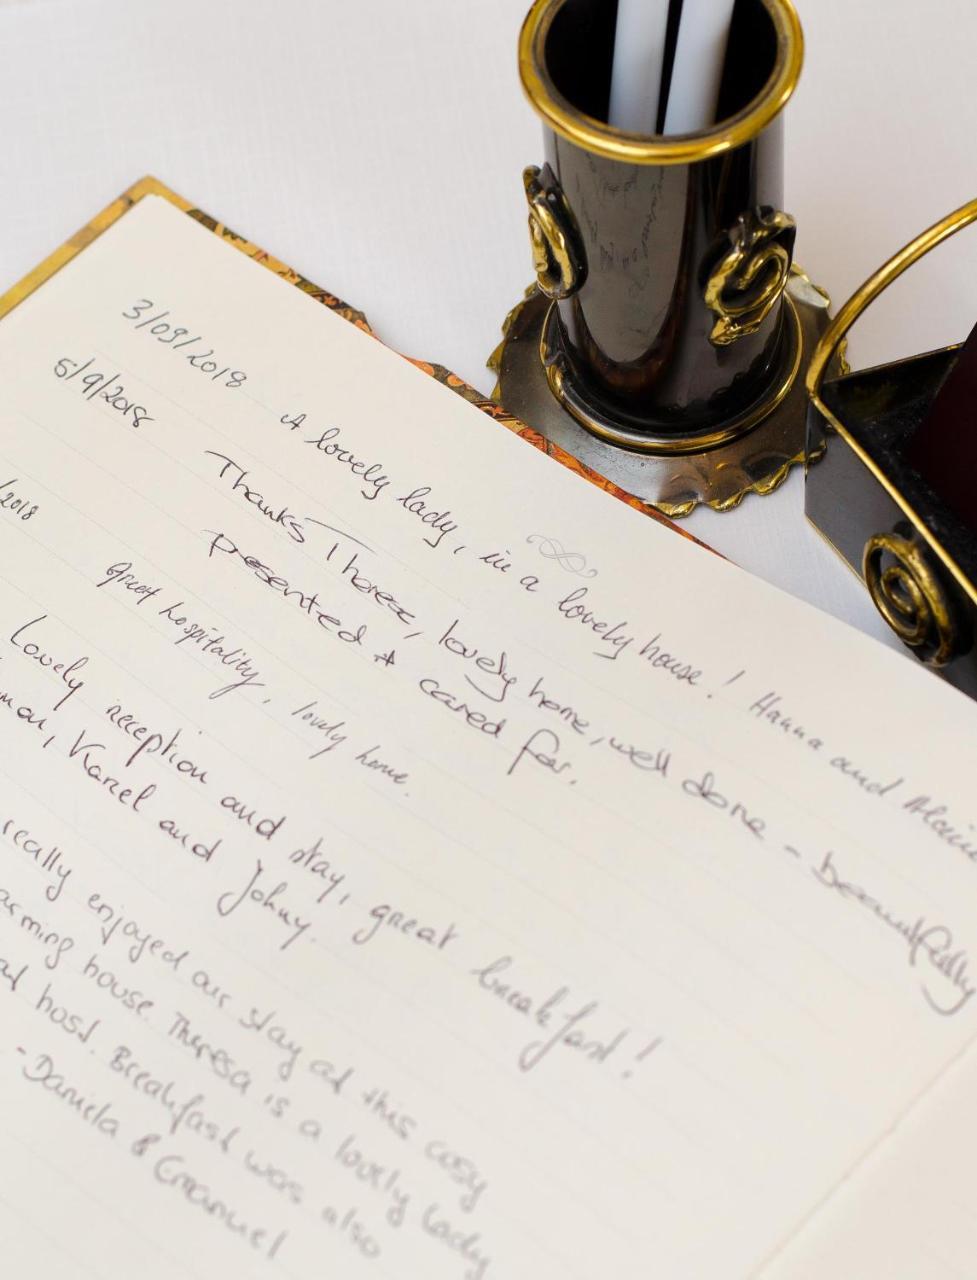 3/09/2018 A lovely lady, in a lovely house! Hanna and
5/9/2018 Thanks Therese, lovely home, well done - beautifully
presented + cared for.
/2018 great hospitality, lovely home.
Lovely reception and stay, great breakfast!
Karel and Johny.
really enjoyed our stay at this cosy
arming house. Theresa is a lovely lady
host. Breakfast was also
- Daniela & Emanuel